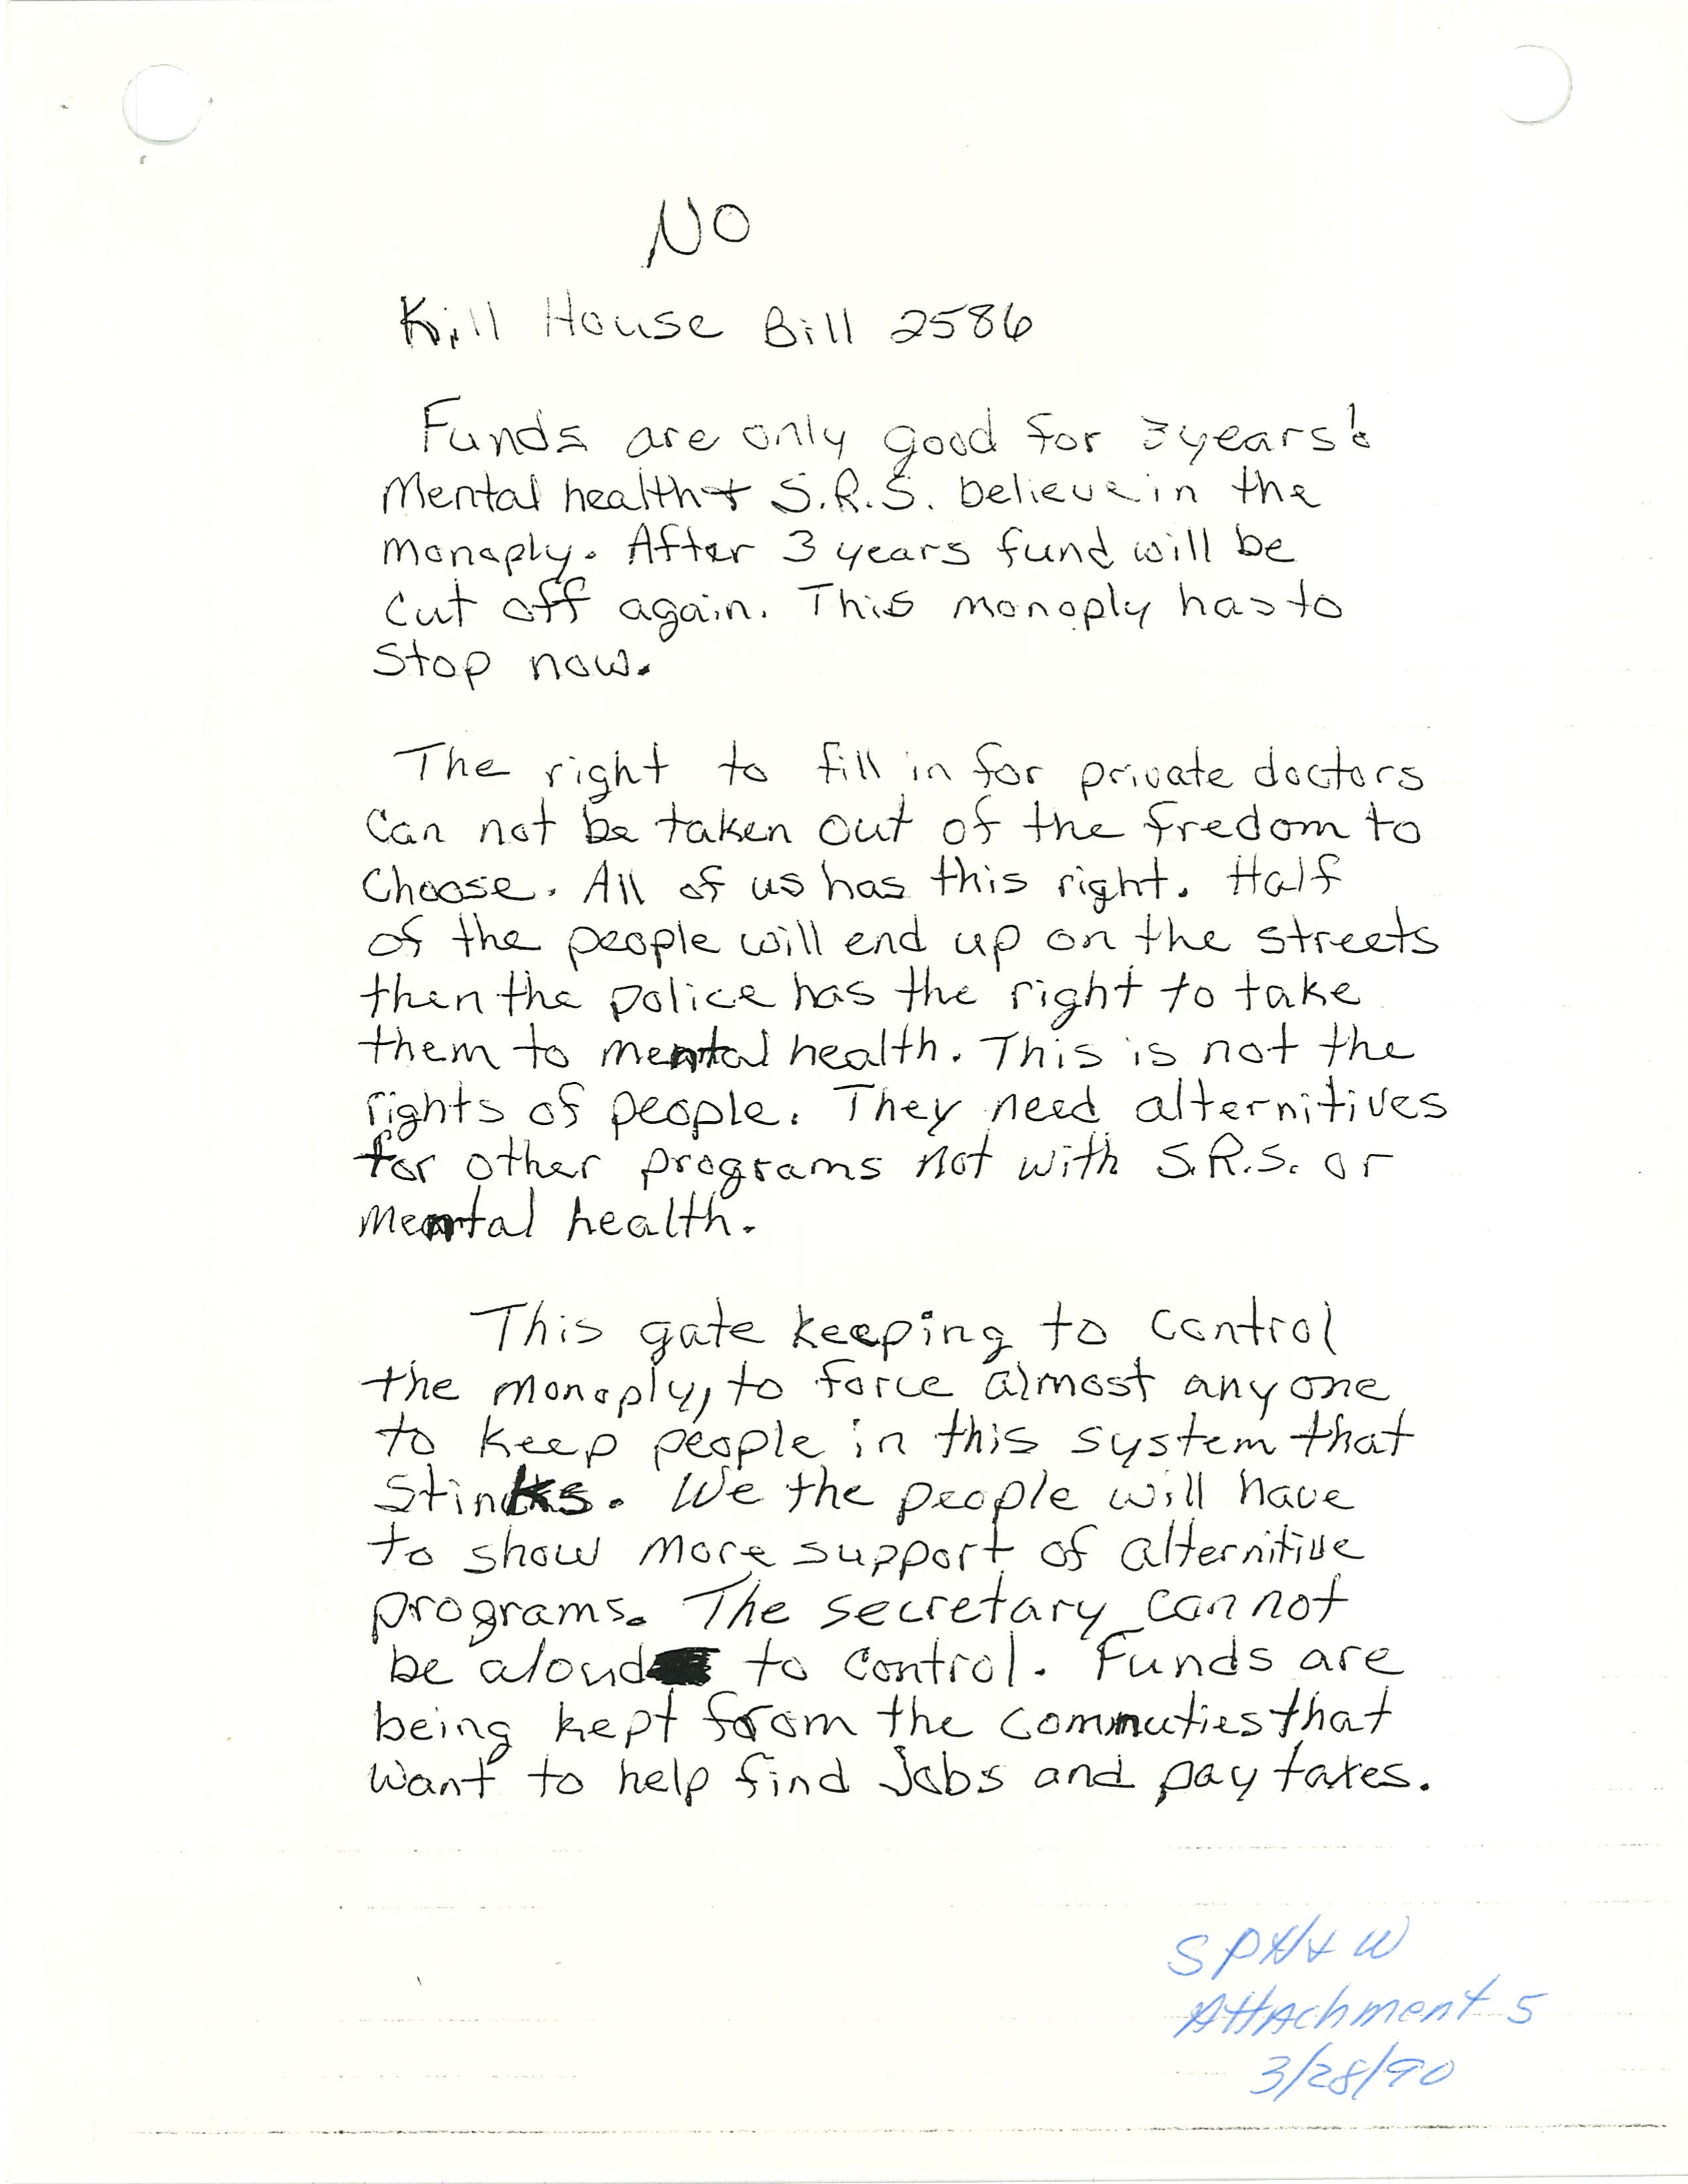 NO
Kill House Bill 2586
Funds are only good for 3 years!
Mental health + S.R.S. believe in the
monaply. After 3 years fund will be
cut off again. This monoply has to
stop now.
The right to fill in for private doctors
can not be taken out of the fredom to
choose. All of us has this right. Half
of the people will end up on the streets
then the police has the right to take
them to mental health. This is not the
rights of people. They need alternitives
for other programs not with S.R.S. or
mental health.
This gate keeping to control
the monoply, to force almost anyone
to keep people in this system that
stinks. We the people will have
to show more support of alternitive
programs. The secretary can not
be aloud to control. Funds are
being kept from the commuties that
want to help find jobs and pay taxes.
SPH+W
Attachment 5
3/28/90